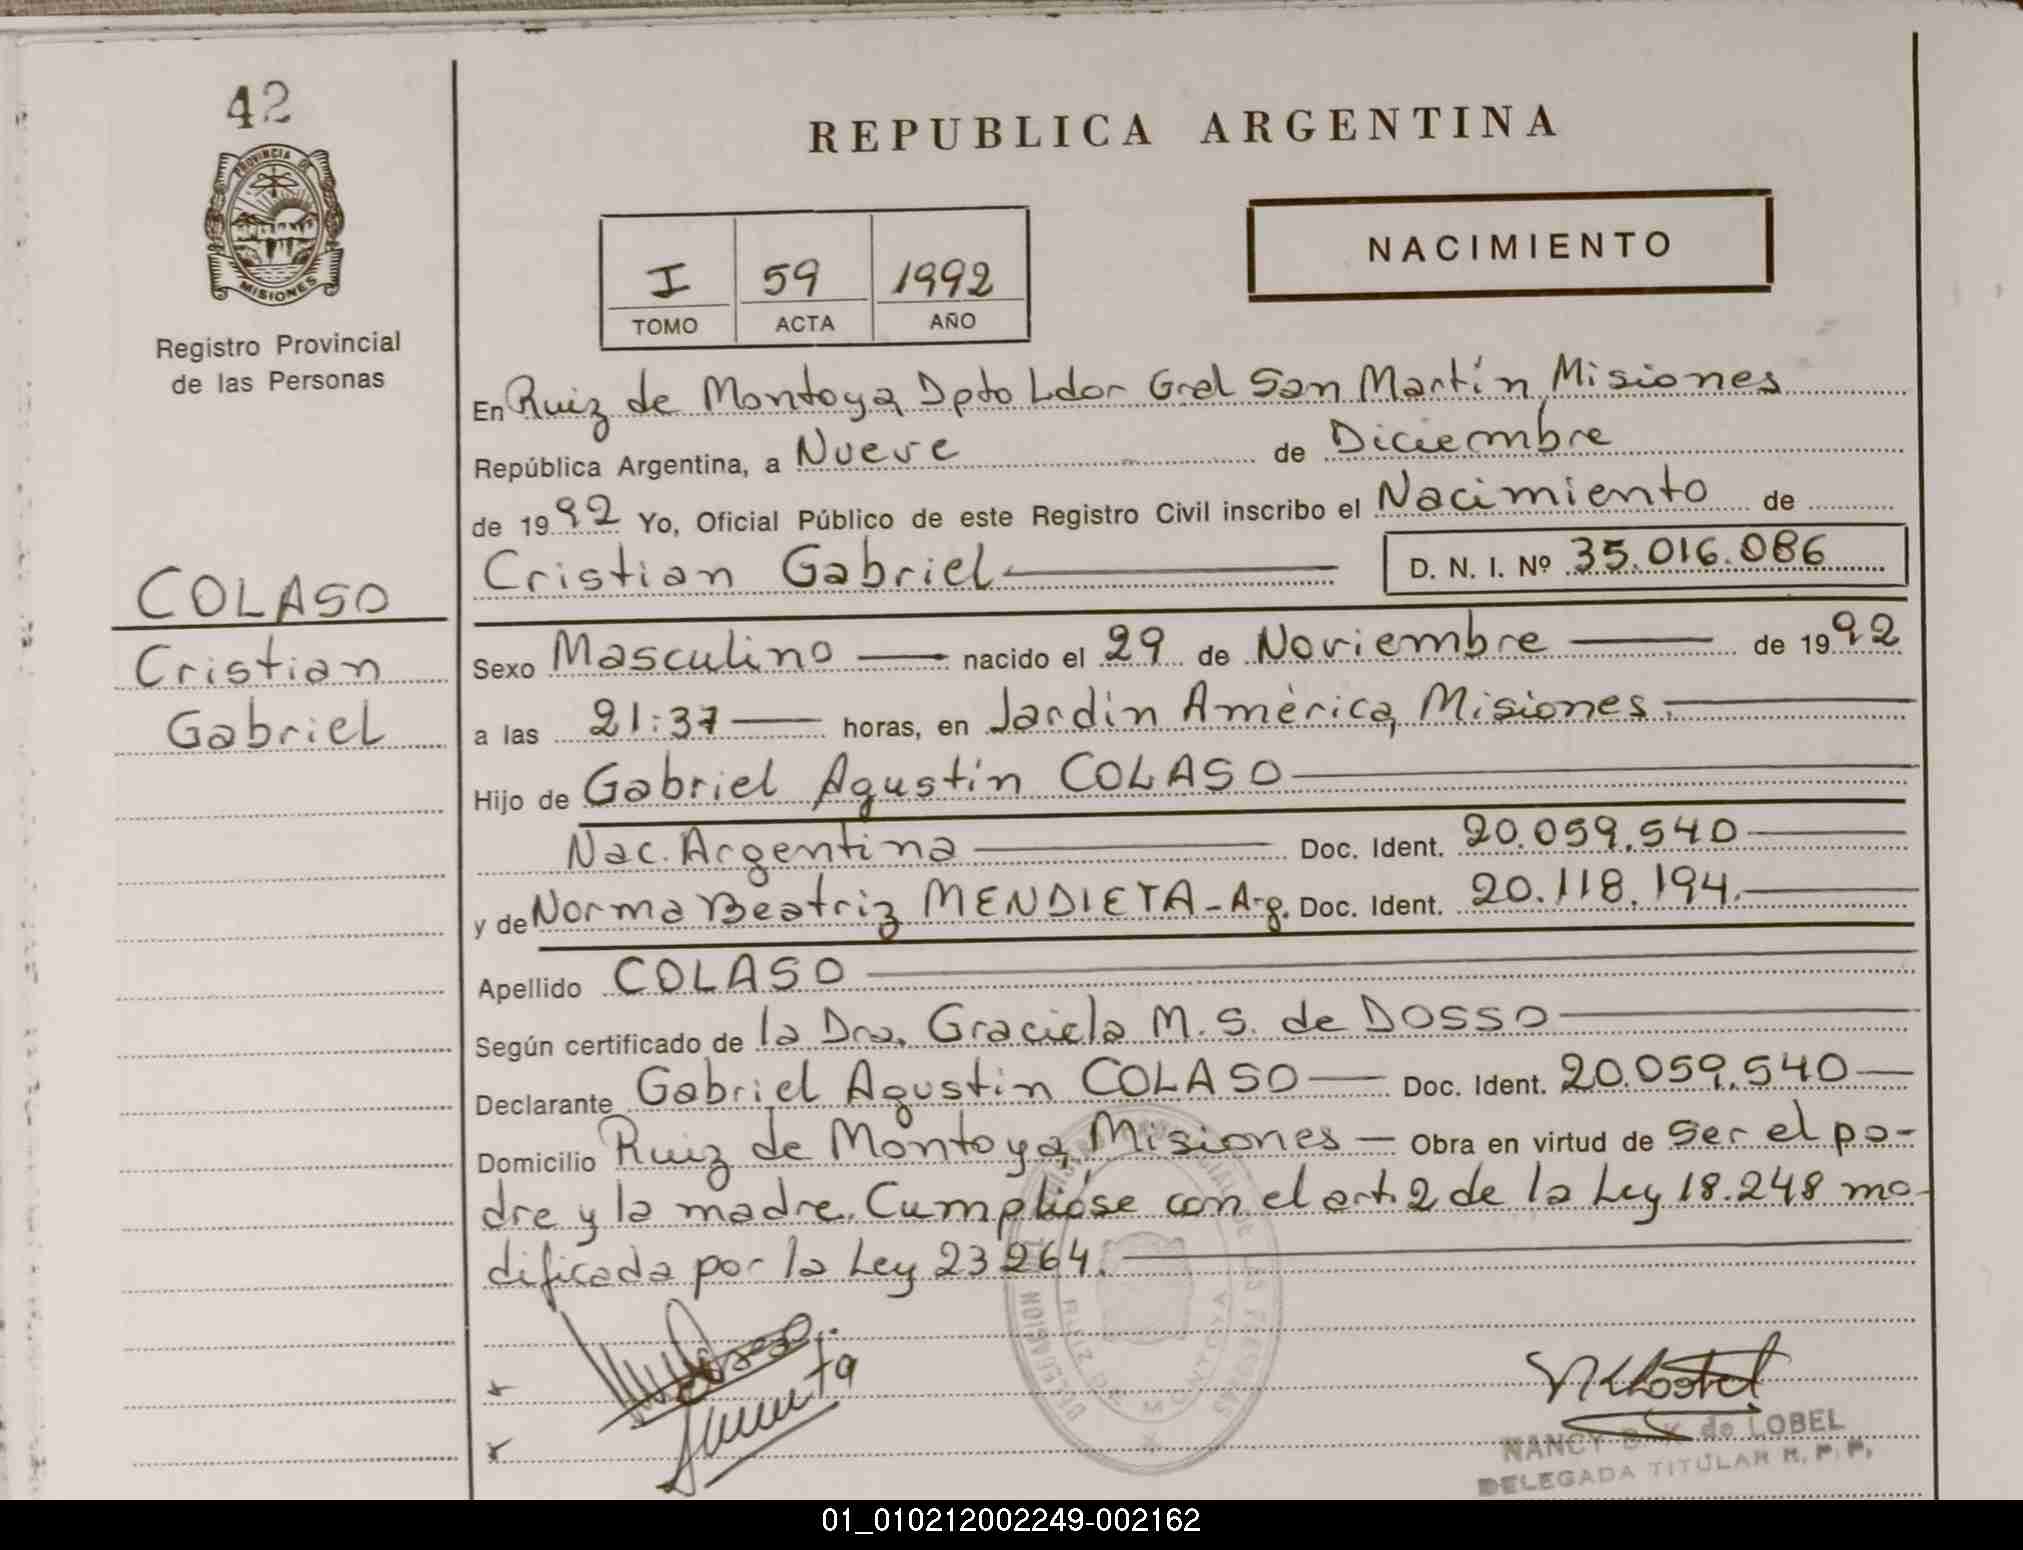 42
PROVINCIA DE
MISIONES
Registro Provincial
de las Personas
COLASO
Cristian
Gabriel
REPUBLICA ARGENTINA
NACIMIENTO
I 59 1992
TOMO ACTA AÑO
En Ruiz de Montoya, Dpto Ldor Gral San Martín, Misiones
República Argentina, a Nueve de Diciembre
de 1992 Yo, Oficial Público de este Registro Civil inscribo el Nacimiento de
Cristian Gabriel D. N. I. Nº 35.016.086
Sexo Masculino nacido el 29 de Noviembre de 1992
a las 21:37 horas, en Jardín América, Misiones.
Hijo de Gabriel Agustín COLASO
Nac. Argentina Doc. Ident. 20.059.540
y de Norma Beatriz MENDIETA - Arg. Doc. Ident. 20.118.194.
Apellido COLASO
Según certificado de la Dra. Graciela M. S. de DOSSO
Declarante Gabriel Agustin COLASO Doc. Ident. 20.059.540
Domicilio Ruiz de Montoya, Misiones - Obra en virtud de ser el pa-
dre y la madre. Cumplióse con el art. 2 de la Ley 18.248 mo-
dificada por la Ley 23264.
DELEGACION
RUIZ DE MONTOYA
NANCY B. K de LOBEL
DELEGADA TITULAR R. P. P.
01_010212002249-002162